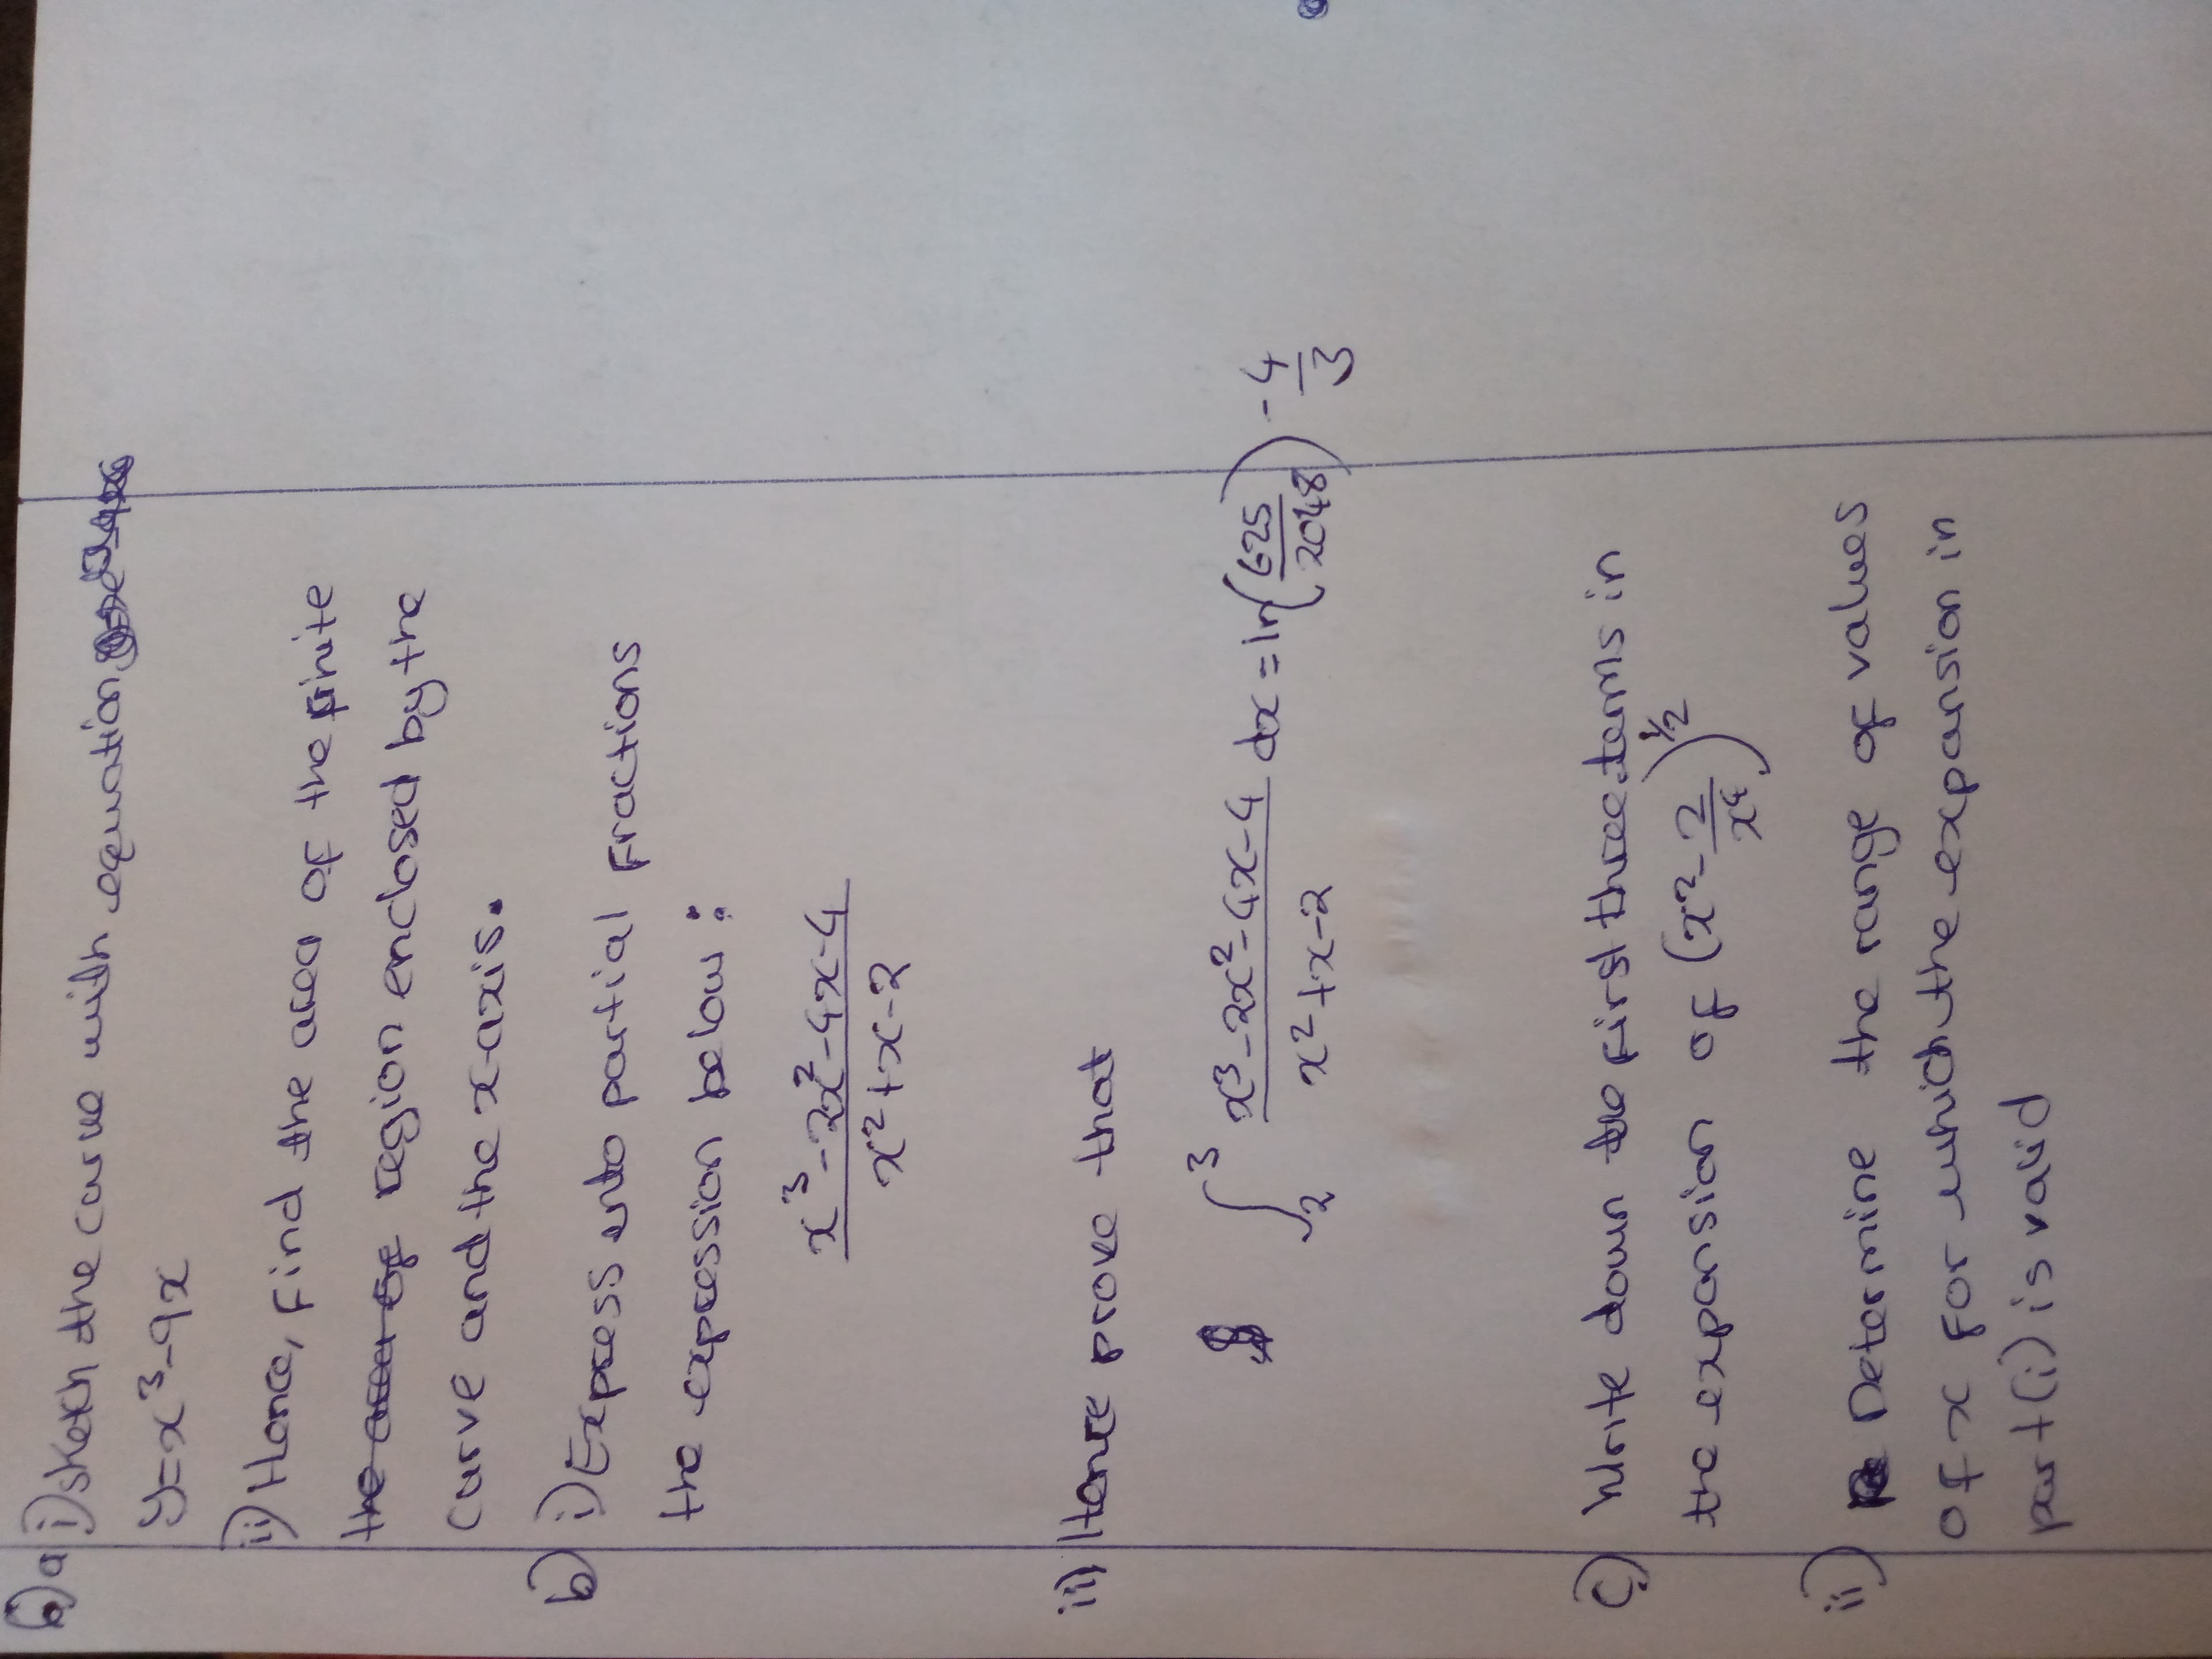 Q) a i) Sketch the curve with equation
y=x³-9x
ii) Hence, Find the area of the finite
the area of region enclosed by the
curve and the x-axis.
b) i) Express into partial fractions
the expression below:
x³-2x²-4x-4
x²+x-2
ii) Hence prove that
∫₂³ (x³-2x²-4x-4)/(x²+x-2) dx = ln(625/2048) - 4/3
c) Write down the first three terms in
the expansion of (x² - 2/x⁴)^½
ii) Determine the range of values
of x for which the expansion in
part (i) is valid